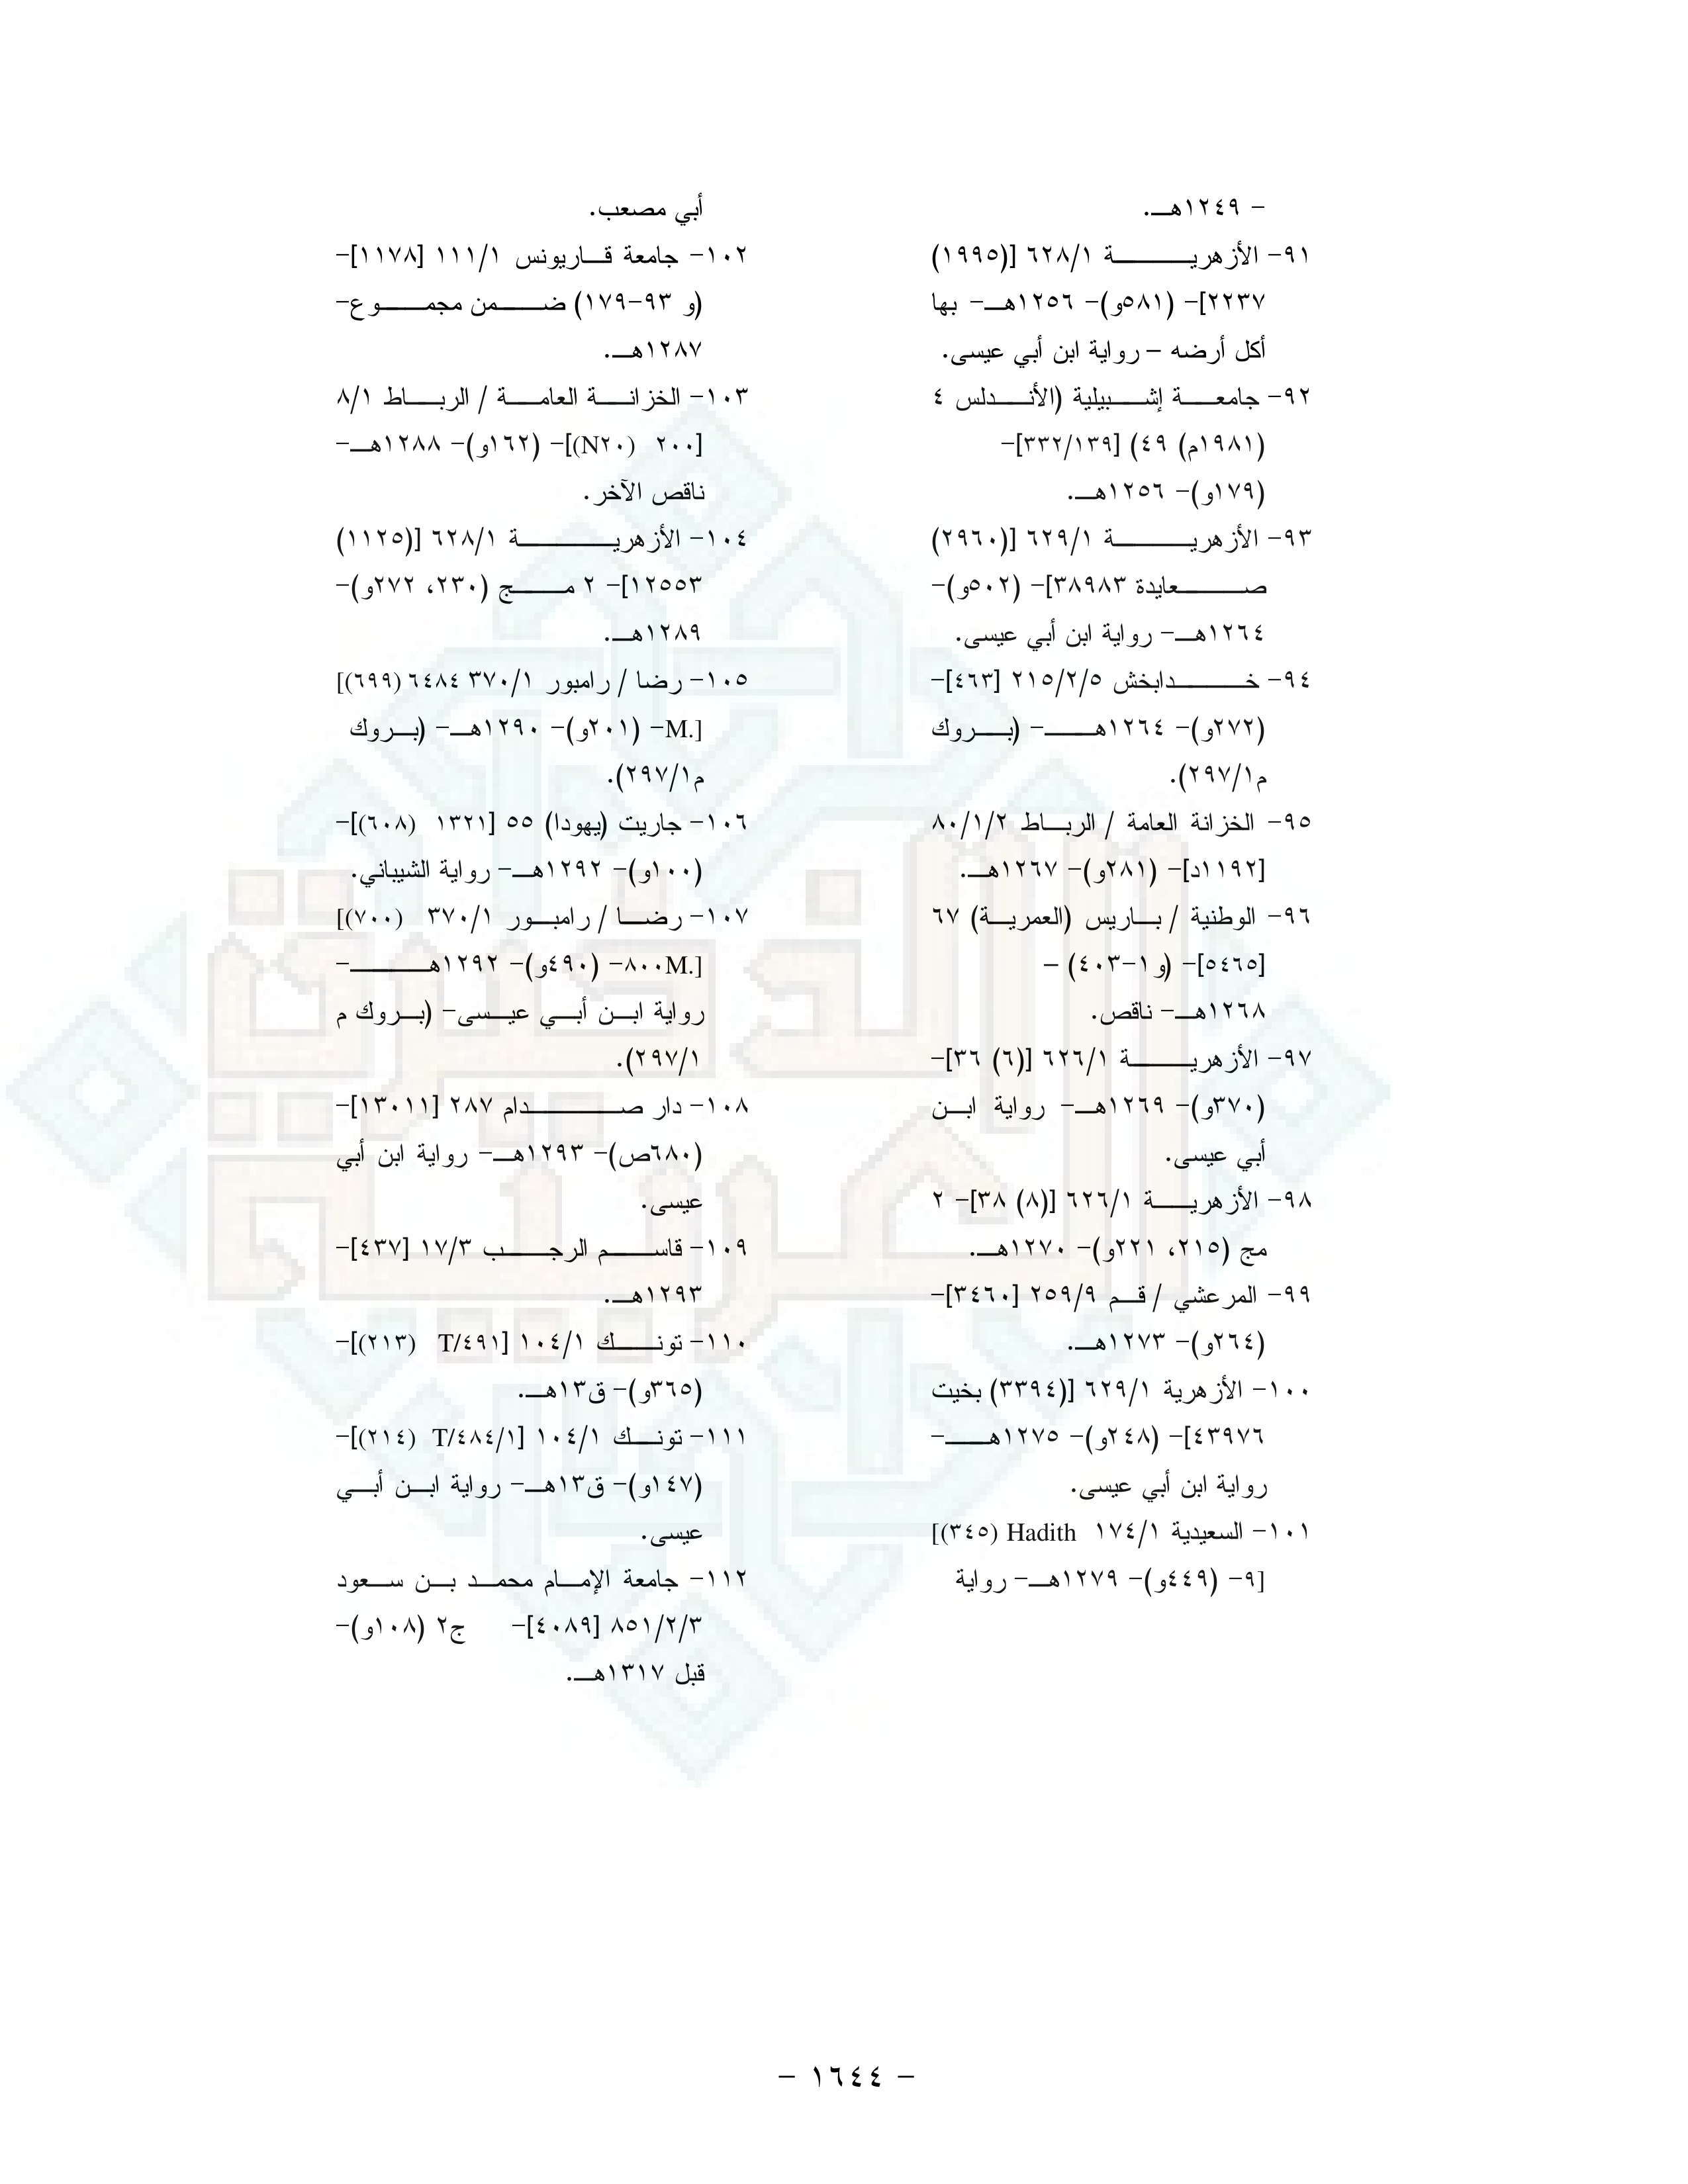 - ١٢٤٩هـ.
٩١- الأزهرية ٦٢٨/١ [(١٩٩٥)
٢٢٣٧]- (٥٨١و)- ١٢٥٦هـ- بها
أكل أرضه – رواية ابن أبي عيسى.
٩٢- جامعة إشبيلية (الأندلس ٤
(١٩٨١م) ٤٩) [٣٣٢/١٣٩]-
(١٧٩و)- ١٢٥٦هـ.
٩٣- الأزهرية ٦٢٩/١ [(٢٩٦٠)
صعايدة ٣٨٩٨٣]- (٥٠٢و)-
١٢٦٤هـ- رواية ابن أبي عيسى.
٩٤- خدابخش ٢١٥/٢/٥ [٤٦٣]-
(٢٧٢و)- ١٢٦٤هـ- (بروك
م٢٩٧/١).
٩٥- الخزانة العامة / الرباط ٨٠/١/٢
[١١٩٢د]- (٢٨١و)- ١٢٦٧هـ.
٩٦- الوطنية / باريس (العمرية) ٦٧
[٥٤٦٥]- (و١-٤٠٣) –
١٢٦٨هـ- ناقص.
٩٧- الأزهرية ٦٢٦/١ [(٦) ٣٦]-
(٣٧٠و)- ١٢٦٩هـ- رواية ابن
أبي عيسى.
٩٨- الأزهرية ٦٢٦/١ [(٨) ٣٨]- ٢
مج (٢١٥، ٢٢١و)- ١٢٧٠هـ.
٩٩- المرعشي / قم ٢٥٩/٩ [٣٤٦٠]-
(٢٦٤و)- ١٢٧٣هـ.
١٠٠- الأزهرية ٦٢٩/١ [(٣٣٩٤) بخيت
٤٣٩٧٦]- (٢٤٨و)- ١٢٧٥هـ-
رواية ابن أبي عيسى.
١٠١- السعيدية ١٧٤/١ Hadith (٣٤٥)]
[٩- (٤٤٩و)- ١٢٧٩هـ- رواية
أبي مصعب.
١٠٢- جامعة قاريونس ١١١/١ [١١٧٨]-
(و ٩٣-١٧٩) ضمن مجموع-
١٢٨٧هـ.
١٠٣- الخزانة العامة / الرباط ٨/١
[٢٠٠ (N٢٠)]- (١٦٢و)- ١٢٨٨هـ-
ناقص الآخر.
١٠٤- الأزهرية ٦٢٨/١ [(١١٢٥)
١٢٥٥٣]- ٢ مج (٢٣٠، ٢٧٢و)-
١٢٨٩هـ.
١٠٥- رضا / رامبور ٣٧٠/١ ٦٤٨٤ (٦٩٩)]
[.M- (٢٠١و)- ١٢٩٠هـ- (بروك
م٢٩٧/١).
١٠٦- جاريت (يهودا) ٥٥ [١٣٢١ (٦٠٨)]-
(١٠٠و)- ١٢٩٢هـ- رواية الشيباني.
١٠٧- رضا / رامبور ٣٧٠/١ (٧٠٠)]
[.٨٠٠M- (٤٩٠و)- ١٢٩٢هـ-
رواية ابن أبي عيسى- (بروك م
٢٩٧/١).
١٠٨- دار صدام ٢٨٧ [١٣٠١١]-
(٦٨٠ص)- ١٢٩٣هـ- رواية ابن أبي
عيسى.
١٠٩- قاسم الرجب ١٧/٣ [٤٣٧]-
١٢٩٣هـ.
١١٠- تونك ١٠٤/١ [T/٤٩١ (٢١٣)]-
(٣٦٥و)- ق١٣هـ.
١١١- تونك ١٠٤/١ [T/٤٨٤/١ (٢١٤)]-
(١٤٧و)- ق١٣هـ- رواية ابن أبي
عيسى.
١١٢- جامعة الإمام محمد بن سعود
٨٥١/٢/٣ [٤٠٨٩]- ج٢ (١٠٨و)-
قبل ١٣١٧هـ.
- ١٦٤٤ -